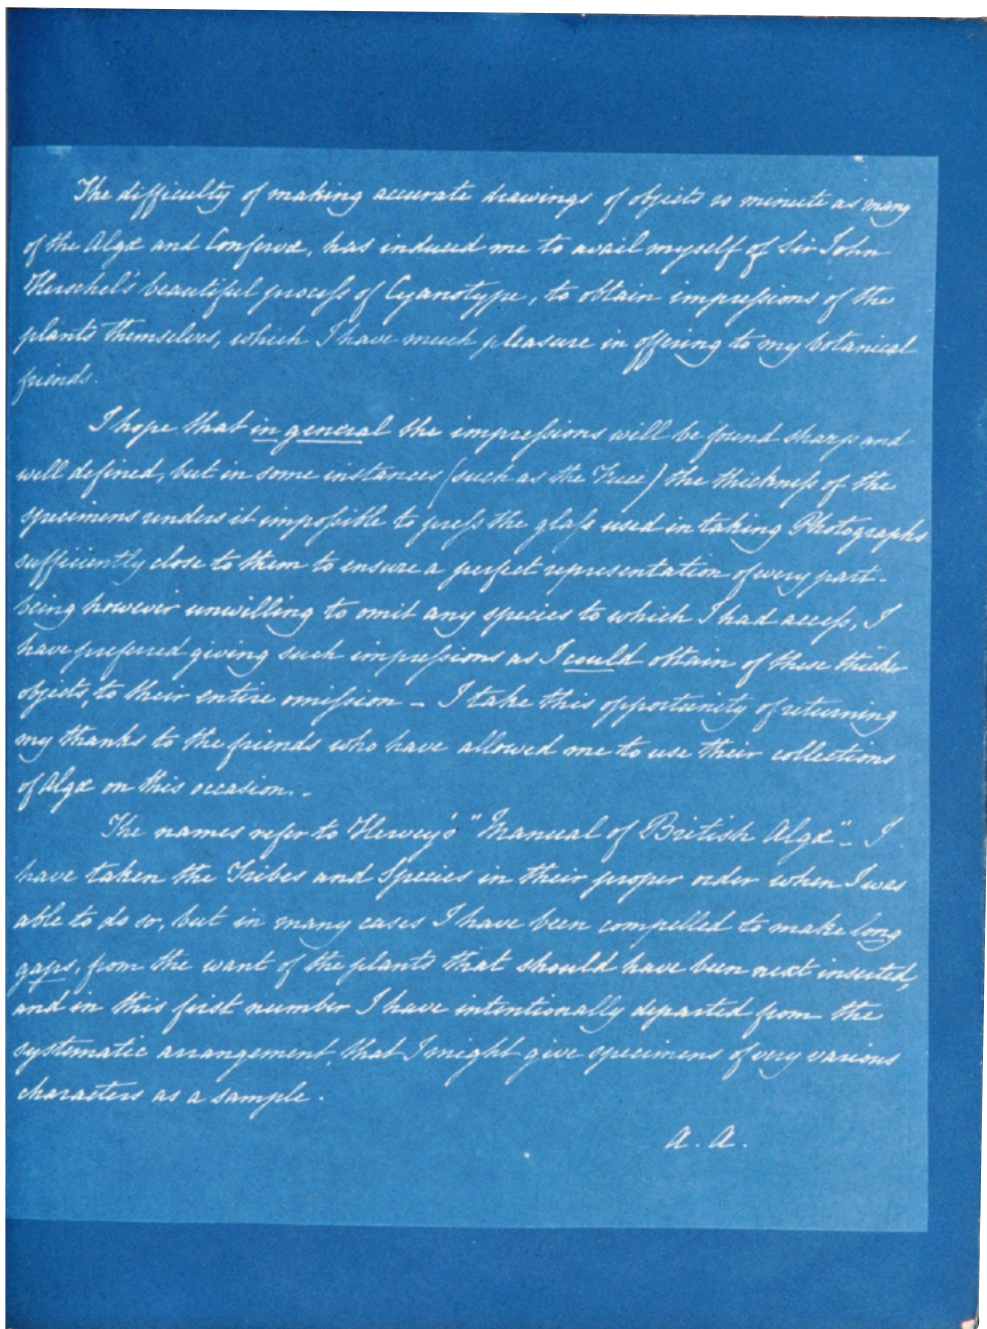 The difficulty of making accurate drawings of objects so minute as many
of the Algæ and Confervæ, has induced me to avail myself of Sir John
Herschel's beautiful process of Cyanotype, to obtain impressions of the
plants themselves, which I have much pleasure in offering to my botanical
friends.
I hope that in general the impressions will be found sharp and
well defined, but in some instances (such as the Fuci) the thickness of the
specimens renders it impossible to press the glass used in taking Photographs
sufficiently close to them to ensure a perfect representation of every part.
being however unwilling to omit any species to which I had access, I
have preferred giving such impressions as I could obtain of these thicker
objects, to their entire omission – I take this opportunity of returning
my thanks to the friends who have allowed me to use their collections
of Algæ on this occasion. –
The names refer to Harvey's "Manual of British Algæ" – I
have taken the Tribes and Species in their proper order when I was
able to do so, but in many cases I have been compelled to make long
gaps, from the want of the plants that should have been next inserted,
and in this first number I have intentionally departed from the
systematic arrangement, that I might give specimens of very various
characters as a sample.
A. A.